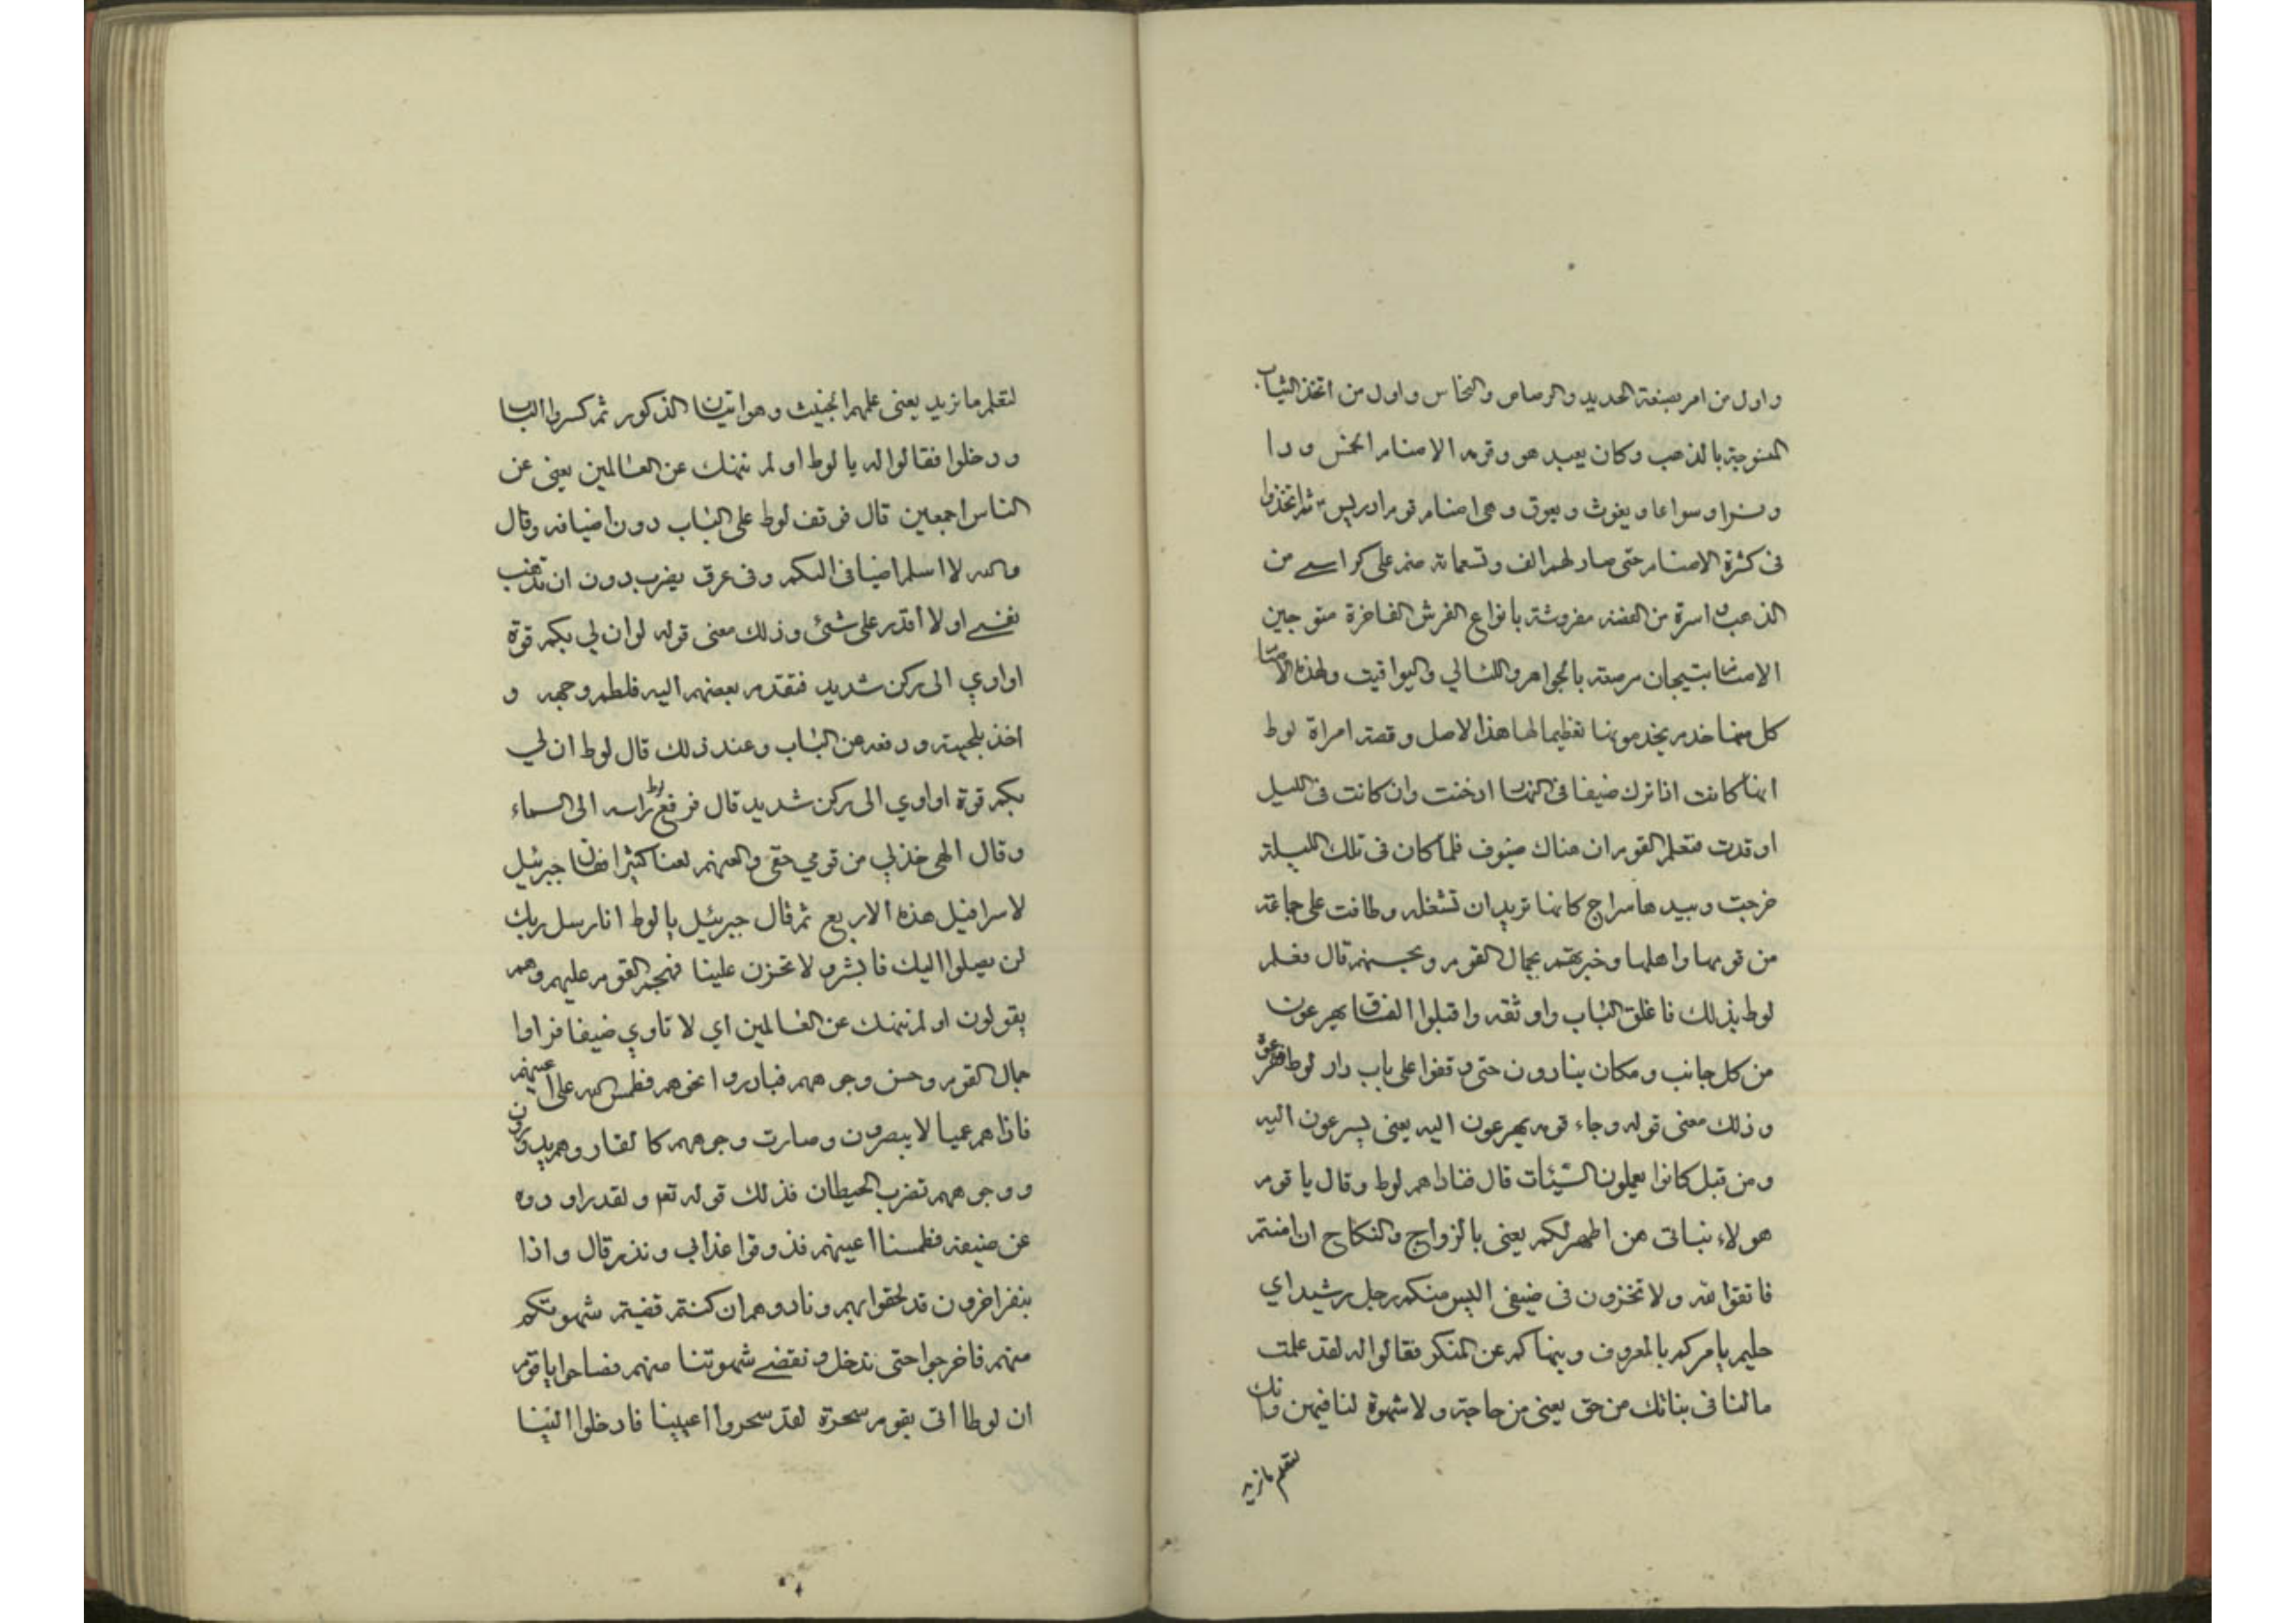 واول من امر بصنعة الحديد والرصاص والنحاس واول من اتخذ الثياب
المنسوجة بالذهب وكان يعبد هو وقومه الاصنام الخمس ودا
ونسرا وسواعا ويغوث ويعوق وهي اصنام قوم ادريس ثم اتخذوا
في كثرة الاصنام حتى صار لهم الف وتسعمائة صنم على كراسي من
الذهب واسرة من الفضة مفروشة بانواع الفرش الفاخرة متوجين
الاصنام بتيجان مرصعة بالجواهر واللئالي واليواقيت ولهذه الاصنام
كل منها خدم يخدمونها تعظيما لها هذا الاصل وقصة امراة لوط
انها كانت اذا نزل ضيفا في النهار ادخنت وان كانت في الليل
اوقدت فتعلم القوم ان هناك ضيوف فلما كان في تلك الليلة
خرجت وبيدها سراج كانها تريد ان تشغله وطافت على جماعة
من قومها واهلها وخبرتهم بجمال القوم وبحسنهم قال فعلم
لوط بذلك فاغلق الباب واوثقه واقبلوا الفساق يهرعون
من كل جانب ومكان ينادون حتى وقفوا على باب دار لوط
وذلك معنى قوله وجاء قومه يهرعون اليه يعني يسرعون اليه
ومن قبل كانوا يعملون السيئات قال فناداهم لوط وقال يا قوم
هولاء بناتي هن اطهر لكم يعني بالزواج والنكاح ان امنتم
فاتقوا الله ولا تخزون في ضيفي اليس منكم رجل رشيد اي
حليم يامركم بالمعروف وينهاكم عن المنكر فقالوا له لقد علمت
ما لنا في بناتك من حق يعني من حاجة ولا شهوة لنا فيهن وانك
لتعلم ما نريد
لتعلم ما نريد يعني علمهم الخبيث وهو اتيان الذكور ثم كسروا الباب
ودخلوا فقالوا له يا لوط او لم ننهك عن العالمين يعني عن
الناس اجمعين قال فوقف لوط على الباب دون اضيافه وقال
والله لا اسلم اضيافي اليكم وفي عرق يضرب دون ان تذهب
نفسي او لا اقدر على شئ وذلك معنى قوله لو ان لي بكم قوة
او اوي الى ركن شديد فتقدم بعضهم اليه فلطم وجهه و
اخذ بلحيته ودفعه عن الباب وعند ذلك قال لوط ان لي
بكم قوة او اوي الى ركن شديد قال فرفع لوط راسه الى السماء
وقال الهي خذ لي من قومي حقي والعنهم لعنا كثيرا فقال جبرئيل
لاسرافيل هذه الاربع ثم قال جبرئيل يا لوط انا رسل ربك
لن يصلوا اليك فابشر ولا تحزن علينا فهجم القوم عليهم وهم
يقولون او لم ننهك عن العالمين اي لا تاوي ضيفا فراوا
جمال القوم وحسن وجوههم فبادروا نحوهم فطمس الله على اعينهم
فاذا هم عميا لا يبصرون وصارت وجوههم كالقار وهم يدورون
ووجوههم تضرب الحيطان فذلك قوله تعم ولقد راودوه
عن ضيفه فطمسنا اعينهم فذوقوا عذابي ونذر قال واذا
بنفر اخرون قد لحقوا بهم ونادوهم ان كنتم قضيتم شهوتكم
منهم فاخرجوا حتى ندخل ونقضي شهوتنا منهم فصاحوا يا قوم
ان لوطا اتى بقوم سحرة لقد سحروا اعيننا فادخلوا الينا